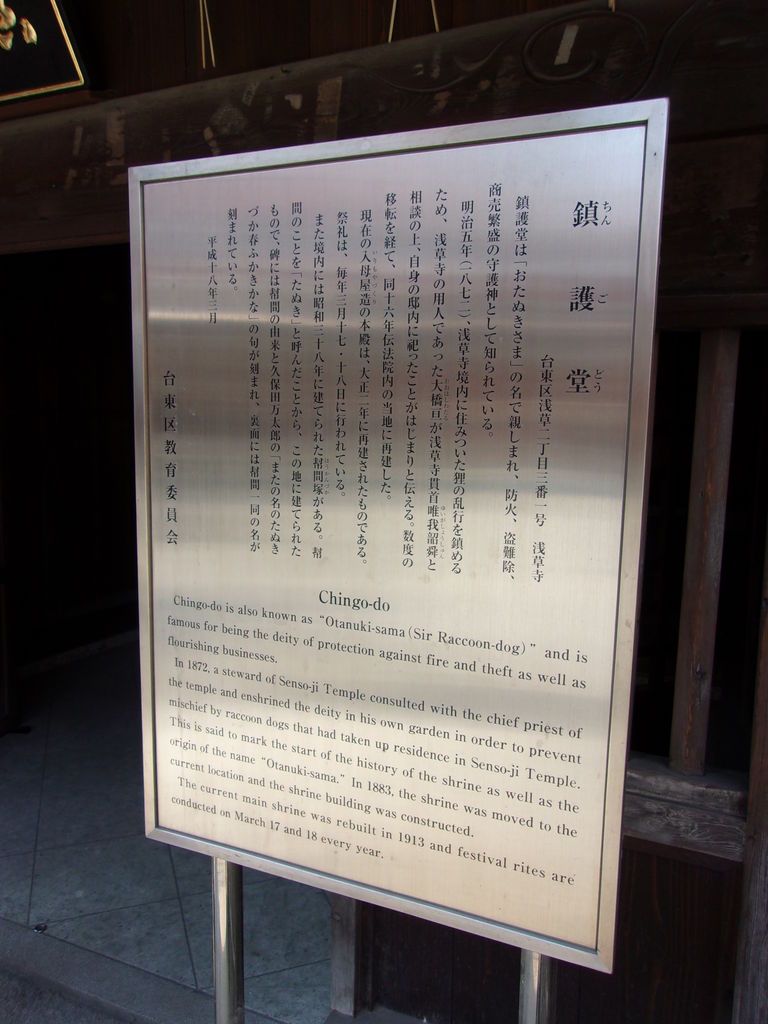 鎮護堂
ちん ご どう
台東区浅草二丁目三番一号　浅草寺
鎮護堂は「おたぬきさま」の名で親しまれ、防火、盗難除、
商売繁盛の守護神として知られている。
明治五年(一八七二)、浅草寺境内に住みついた狸の乱行を鎮める
ため、浅草寺の用人であった大橋亘が浅草寺貫首唯我韶舜と
相談の上、自身の邸内に祀ったことがはじまりと伝える。数度の
移転を経て、同十六年伝法院内の当地に再建した。
現在の入母屋造の本殿は、大正二年に再建されたものである。
祭礼は、毎年三月十七・十八日に行われている。
また境内には昭和三十八年に建てられた幇間塚がある。幇
間のことを「たぬき」と呼んだことから、この地に建てられた
もので、碑には幇間の由来と久保田万太郎の「またの名のたぬき
づか春ふかきかな」の句が刻まれ、裏面には幇間一同の名が
刻まれている。
平成十八年三月
台東区教育委員会
Chingo-do
Chingo-do is also known as “Otanuki-sama (Sir Raccoon-dog) ” and is
famous for being the deity of protection against fire and theft as well as
flourishing businesses.
In 1872, a steward of Senso-ji Temple consulted with the chief priest of
the temple and enshrined the deity in his own garden in order to prevent
mischief by raccoon dogs that had taken up residence in Senso-ji Temple.
This is said to mark the start of the history of the shrine as well as the
origin of the name “Otanuki-sama.” In 1883, the shrine was moved to the
current location and the shrine building was constructed.
The current main shrine was rebuilt in 1913 and festival rites are
conducted on March 17 and 18 every year.